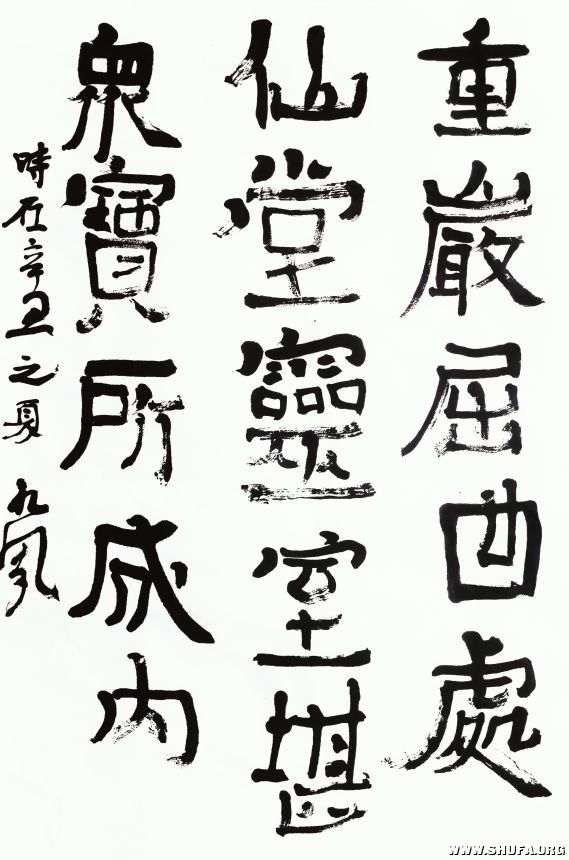 重巖屈曲處
仙堂靈室堪
眾寶所成内
時在辛丑之夏 九
WWW.SHUFA.ORG